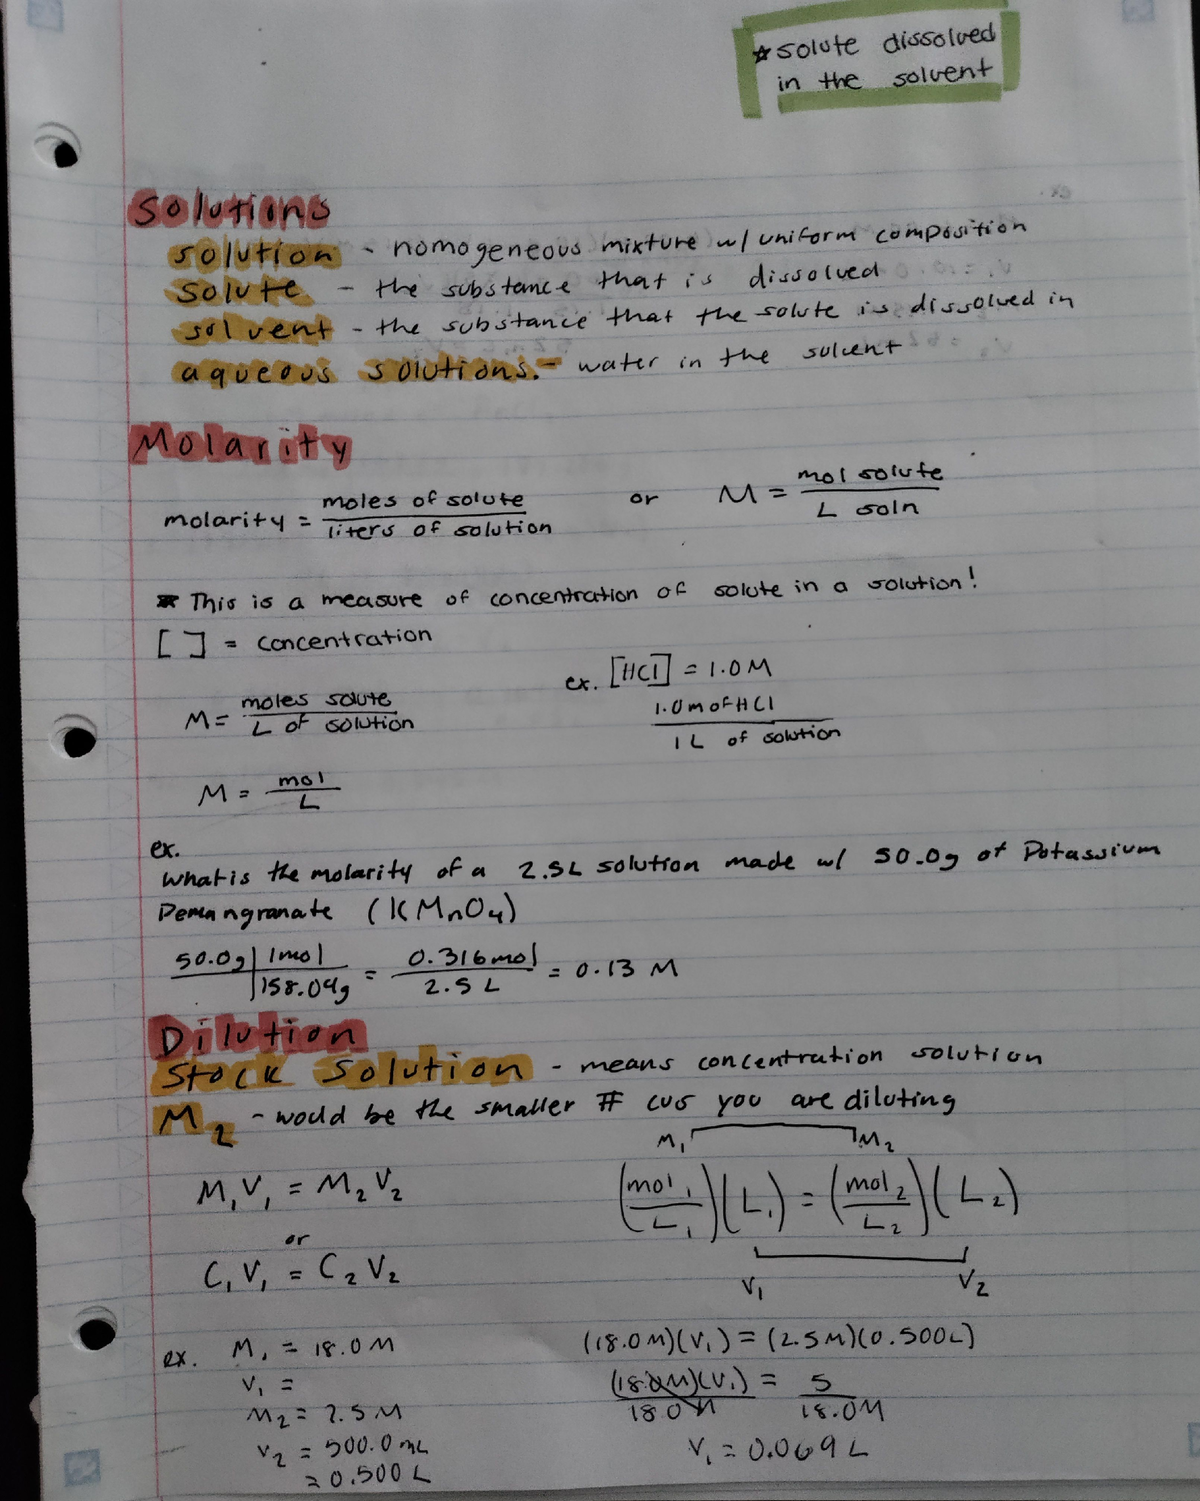 ★ solute dissolved
in the solvent
Solutions
solution - homogeneous mixture w/ uniform composition
solute - the substance that is dissolved
solvent - the substance that the solute is dissolved in
aqueous solutions. - water in the solvent
Molarity
molarity = moles of solute / liters of solution or M = mol solute / L soln
★ This is a measure of concentration of solute in a solution!
[ ] = concentration
ex. [HCl] = 1.0 M
1.0 mol HCl / 1 L of solution
M = moles solute / L of solution
M = mol / L
ex.
What is the molarity of a 2.5L solution made w/ 50.0g of Potassium
Permangranate (KMnO4)
50.0g | 1mol / 158.04g = 0.316 mol / 2.5 L = 0.13 M
Dilution
Stock Solution - means concentration solution
M2 - would be the smaller # cus you are diluting
M1 M2
M1V1 = M2V2 (mol1 / L1)(L1) = (mol2 / L2)(L2)
or
C1V1 = C2V2
V1 V2
ex. M1 = 18.0 M (18.0M)(V1) = (2.5M)(0.500L)
V1 = (18.0M)(V1) / 18.0M = 5 / 18.0M
M2 = 2.5 M
V2 = 500.0 mL V1 = 0.069 L
= 0.500 L